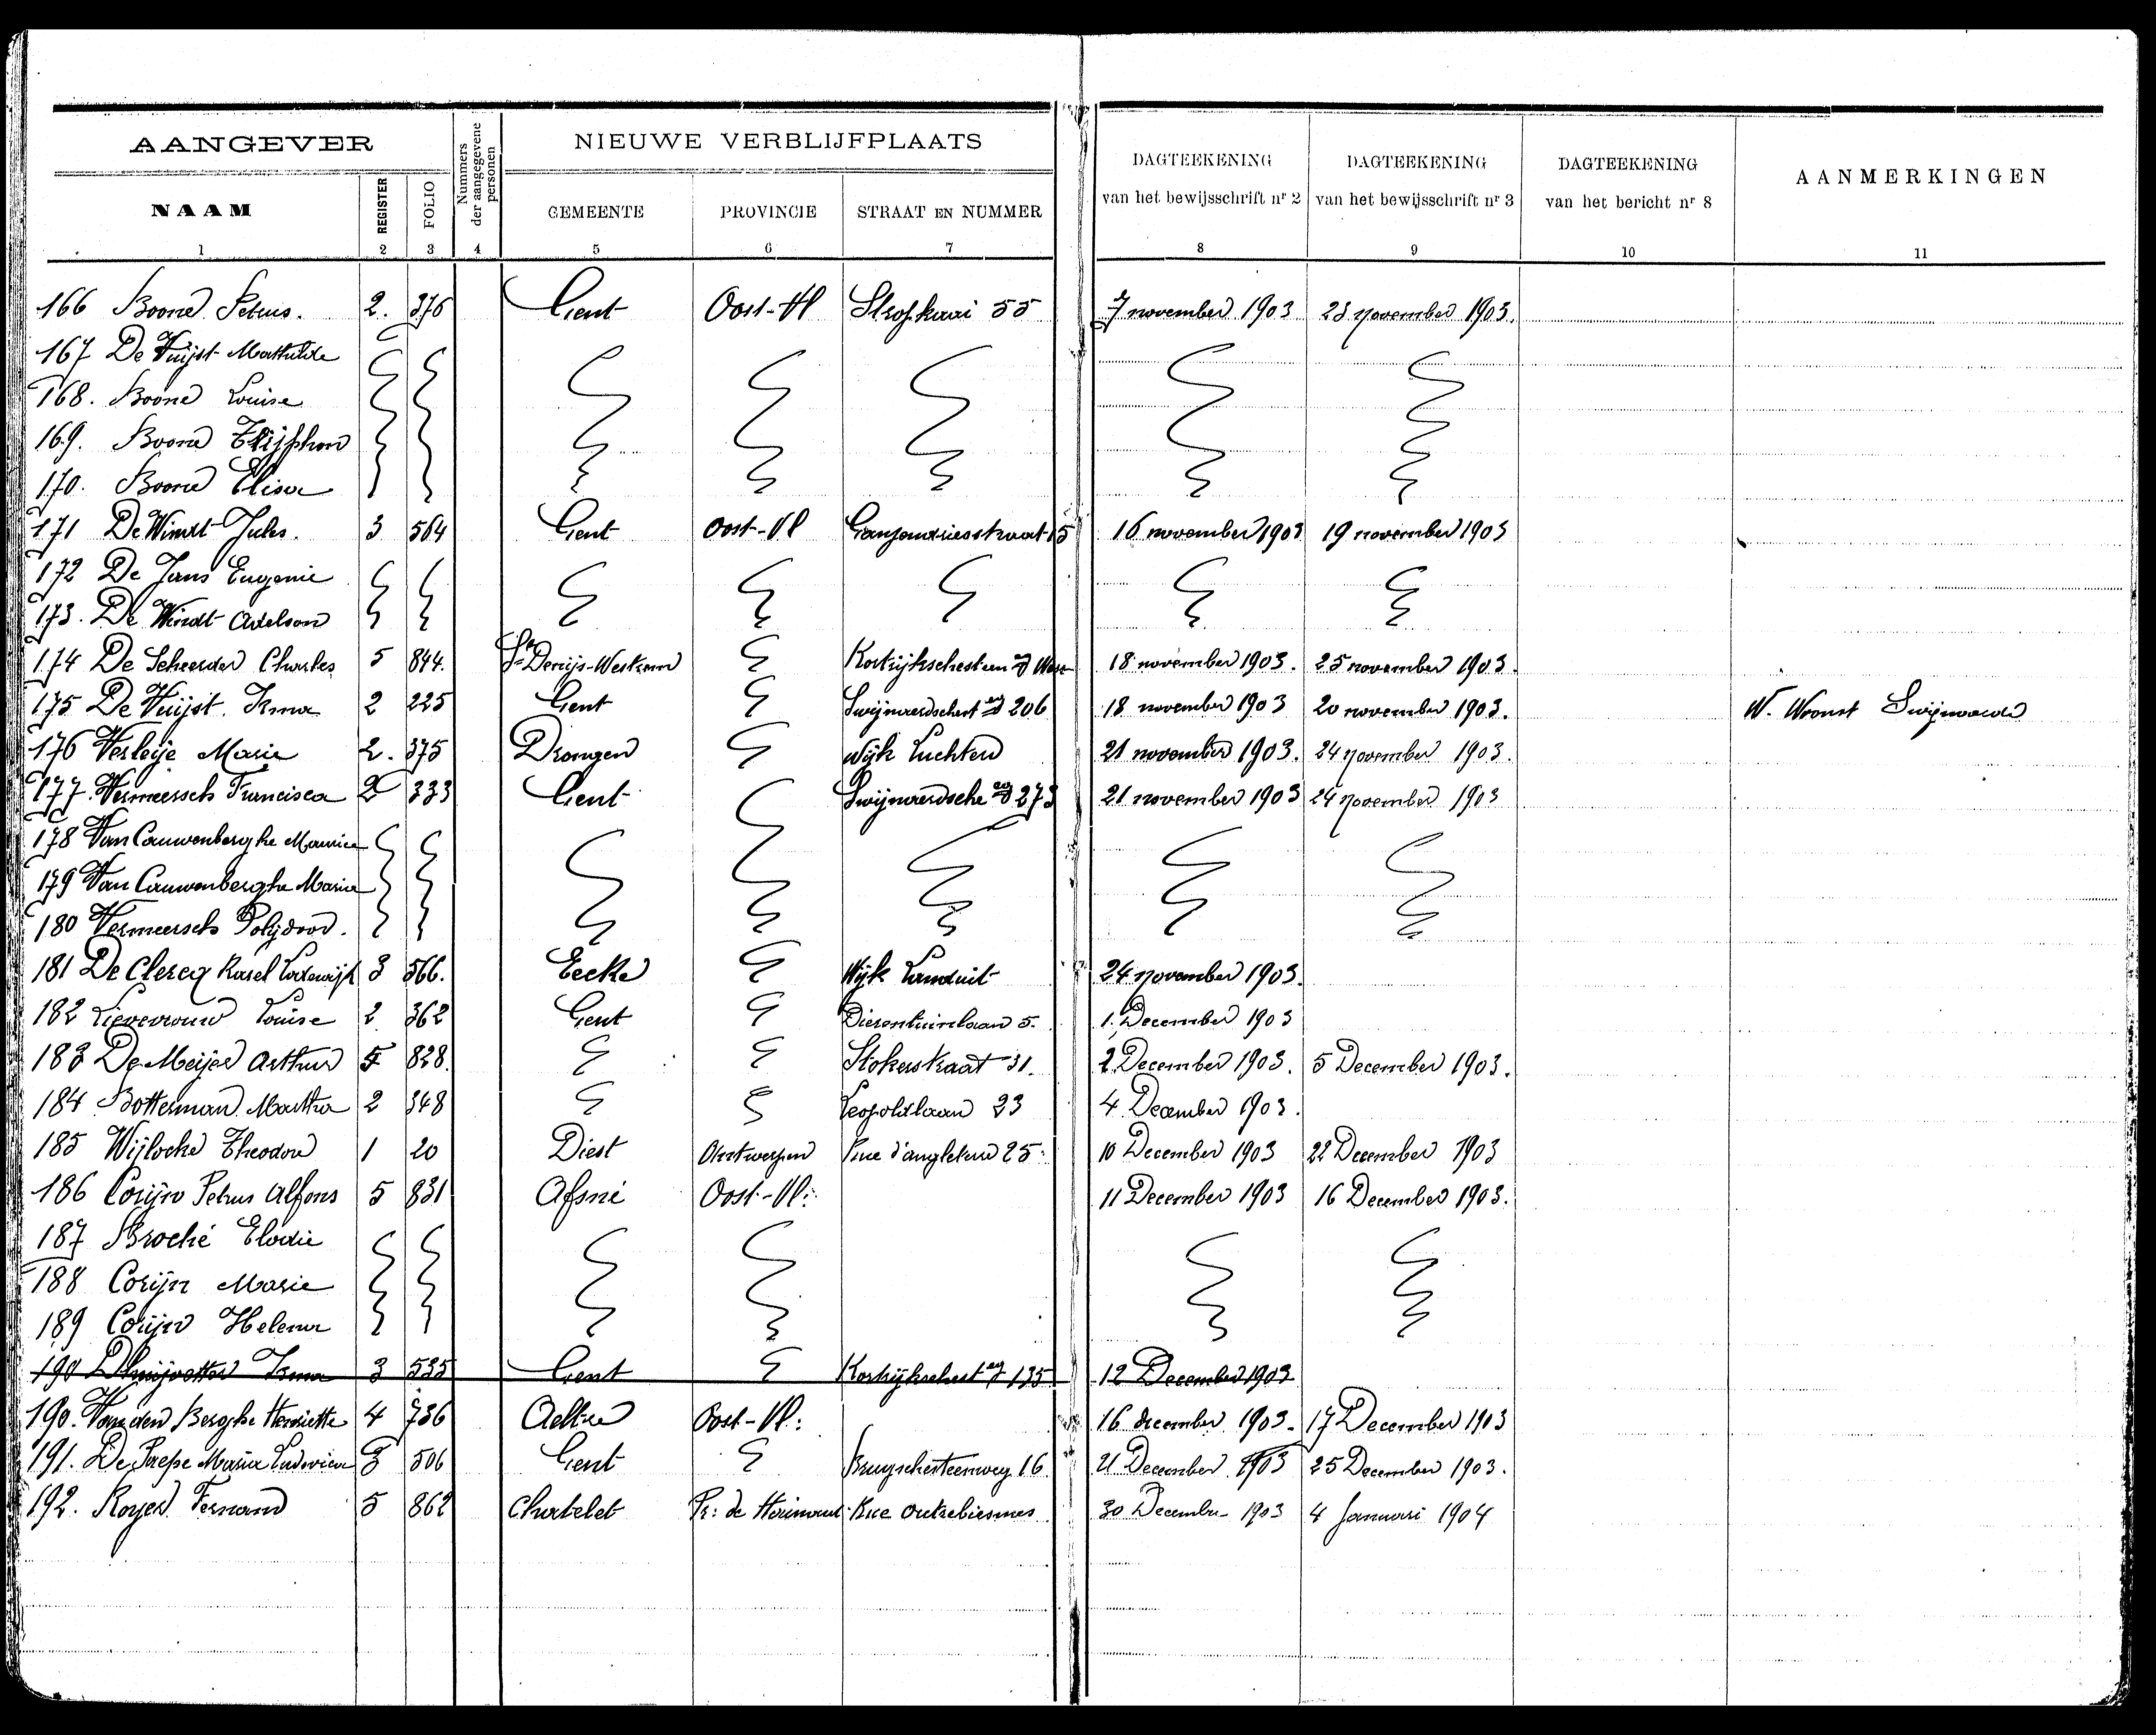 AANGEVER
Nummers der aangegevene personen
NIEUWE VERBLIJFPLAATS
DAGTEEKENING van het bewijsschrift nr 2
DAGTEEKENING van het bewijsschrift nr 3
DAGTEEKENING van het bericht nr 8
AANMERKINGEN
NAAM REGISTER FOLIO GEMEENTE PROVINCIE STRAAT EN NUMMER
1 2 3 4 5 6 7 8 9 10 11
166 Boone Petrus. 2. 376 Gent Oost-Vl Stropkaai 55 7 november 1903 23 november 1903.
167 De Vuijst Mathilde
168. Boone Louise
169. Boone
170. Boone Elisa
171 De Windt Jules. 3 564 Gent Oost-Vl 15 16 november 1903 19 november 1903
172 De Jans Eugenie
173. De Windt Adelson
174 De Scheerder Charles 5 844. St Denijs-Westrem 18 november 1903. 25 november 1903.
175 De Vuijst. Irma 2 225 Gent Swijnaerdschest eg 206 18 november 1903 20 november 1903. W. Woont Swijnaerde
176 Verleije Marie 2. 375 Drongen Wijk Luchteren 21 november 1903. 24 november 1903.
177. Vermeersch Francisca 2 333 Gent Swijnaerdsche eg 273 21 november 1903 24 november 1903
178 Van Cauwenberghe Maurice
179 Van Cauwenberghe Maria
180 Vermeersch Polijdoor.
181 De Clercq Karel Lodewijk 3 566. Eecke Wijk Landuit 24 november 1903.
182 Lievevrouw Louise 2 362 Gent Dierentuinlaan 5. 1. December 1903
183 De Meijer Arthur 5 828. Stokerstraat 31. 2 December 1903. 5 December 1903.
184 Botterman Martha 2 348 Leopoldlaan 23 4 December 1903.
185 Wijlocke Theodoor 1 20 Diest Antwerpen Rue d'angleterre 25. 10 December 1903 22 December 1903
186 Corijn Petrus Alfons 5 831 Afsné Oost-Vl: 11 December 1903 16 December 1903.
187 Broché Elodie
188 Corijn Marie
189 Corijn Helena
190 Irma 3 535 Gent Kortrijkschest eg 135 12 December 1903
190. Van den Berghe Henriette 4 736 Aeltre Oost-Vl: 16 december 1903. 17 December 1903
191. De Paepe Maria Ludovica 3 506 Gent Brugschesteenweg 16 21 December 1903 25 December 1903.
192. Royer Fernand 5 862 Chatelet Rue outrebiesmes 30 December 1903 4 Januari 1904